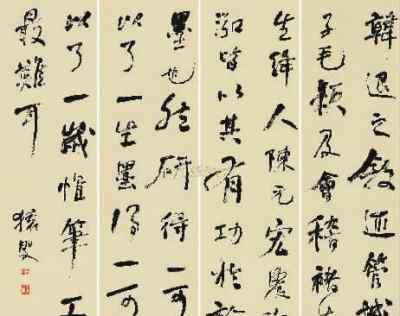 韓退之敘述管城
子毛穎及會稽褚先
生絳人陳玄宏農
泓皆以其有功於
墨也然研得一可
以了一生墨得一可
以了一歲惟筆工
最難耳
猿叟